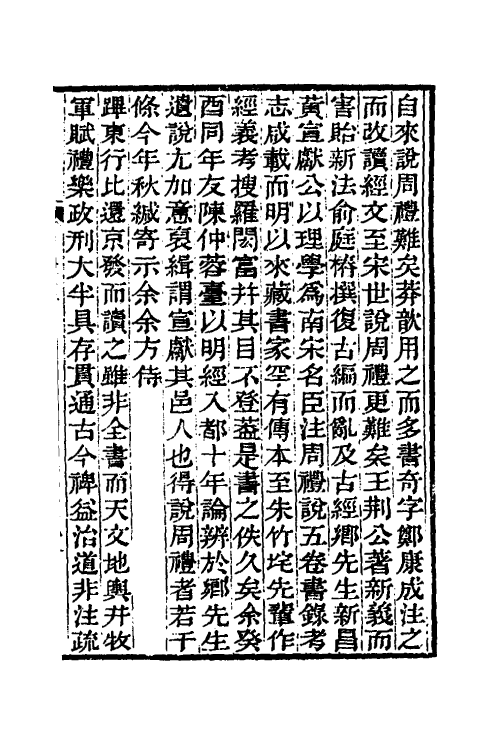 自來說周禮難矣莽歆用之而多書奇字鄭康成注之
而改讀經文至宋世說周禮更難矣王荆公著新義而
害貽新法俞庭椿撰復古編而亂及古經鄉先生新昌
黃宣獻公以理學爲南宋名臣注周禮說五卷書錄考
志咸載而明以來藏書家罕有傳本至朱竹垞先輩作
經義考搜羅閎富幷其目不登葢是書之佚久矣余癸
酉同年友陳仲蓉臺以明經入都十年論辨於鄉先生
遺說尤加意裒緝謂宣獻其邑人也得說周禮者若干
條今年秋緘寄示余余方侍
蹕東行比還京發而讀之雖非全書而天文地輿井牧
軍賦禮樂政刑大半具存貫通古今裨益治道非注疏